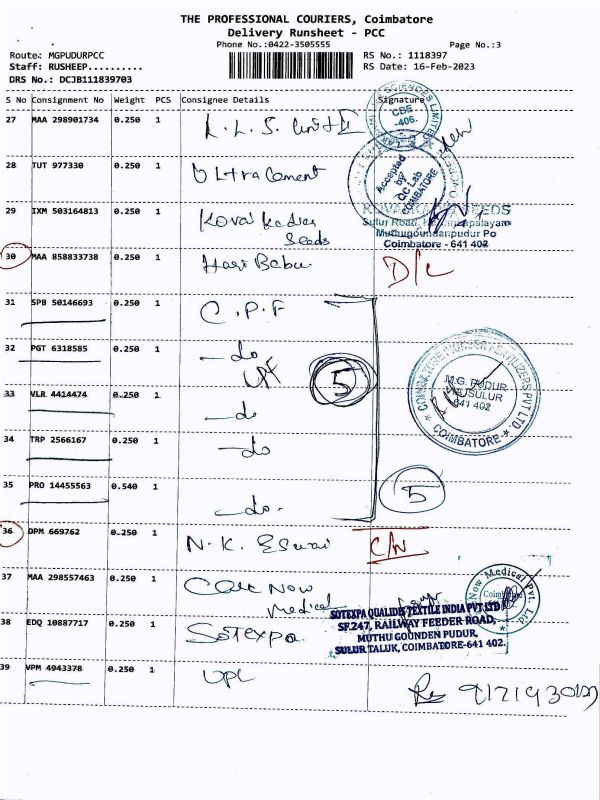 THE PROFESSIONAL COURIERS, Coimbatore
Delivery Runsheet - PCC
Phone No.:0422-3505555 Page No.:3
Route: MGPUDURPCC RS No.: 1118397
Staff: RUSHEEP.......... RS Date: 16-Feb-2023
DRS No.: DCJB111839703
S No Consignment No Weight PCS Consignee Details Signature
27 MAA 298901734 0.250 1 L.L.S. Unit II
CBE
-406.
28 TUT 977330 0.250 1 Ultra Cement
Accepted
by
QC Lab
COIMBATORE
29 IXM 503164813 0.250 1 Kovai Kadier
Seeds
Muthugoundanpudur Po
Coimbatore - 641 402
30 MAA 858833738 0.250 1 Hari Babu D/L
31 SPB 50146693 0.250 1 C.P.F
32 PGT 6318585 0.250 1 —do
UPF
5
33 VLR 4414474 0.250 1 —do
M.G. PUDUR
SULUR
641 402
COIMBATORE
34 TRP 2566167 0.250 1 —do
35 PRO 14455563 0.540 1 —do.
5
36 DPM 669762 0.250 1 N.K. Eswai C/N
37 MAA 298557463 0.250 1 Care Now
Medical
Now Medical Pvt. Ltd
38 EDQ 10887717 0.250 1 Sotexpa.
SOTEXPA QUALIDIS TEXTILE INDIA PVT LTD
SF.247, RAILWAY FEEDER ROAD,
MUTHU GOUNDEN PUDUR,
SULUR TALUK, COIMBATORE-641 402.
39 VPM 4943378 0.250 1 UPL